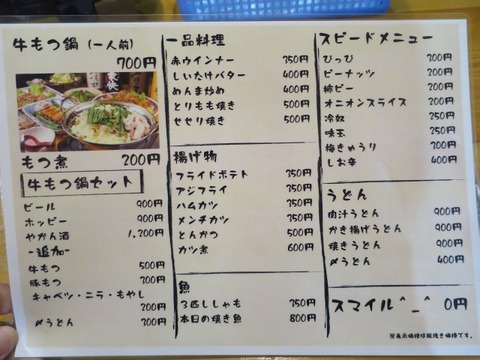 牛もつ鍋(一人前)
700円
もつ煮 200円
牛もつ鍋セット
ビール 900円
ホッピー 900円
やかん酒 1,200円
-追加-
牛もつ 500円
豚もつ 300円
キャベツ・ニラ・もやし
200円
〆うどん 300円
一品料理
赤ウインナー 350円
しいたけバター 400円
めんま炒め 400円
とりもも焼き 500円
セセリ焼き 500円
揚げ物
フライドポテト 350円
アジフライ 350円
ハムカツ 350円
メンチカツ 350円
とんかつ 500円
カツ煮 600円
魚
3匹ししゃも 350円
本日の焼き魚 800円
スピードメニュー
ぴっぴ 200円
ピーナッツ 200円
柿ピー 200円
オニオンスライス 200円
冷奴 250円
味玉
梅きゅうり 300円
しお辛 400円
うどん
肉汁うどん 900円
かき揚げうどん 900円
焼きうどん 900円
〆うどん 400円
スマイル^_^ 0円
※表示価格は税抜き価格です。